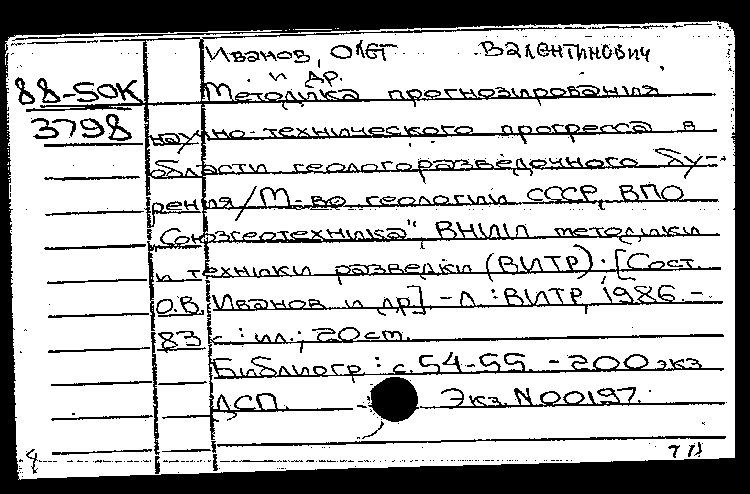 Иванов, Олег Валентинович
и др.
88-50К Методика прогнозирования
3798 научно-технического прогресса в
области геологоразведочного бу-
рения/М-во геологии СССР, ВПО
"Союзгеотехника", ВНИИ методики
и техники разведки (ВИТР); [Сост.
О.В. Иванов и др] - Л. : ВИТР, 1986. -
83 с : ил.; 20 cm.
Библиогр : с. 54-55. - 200 экз
ДСП. Экз N 00197.